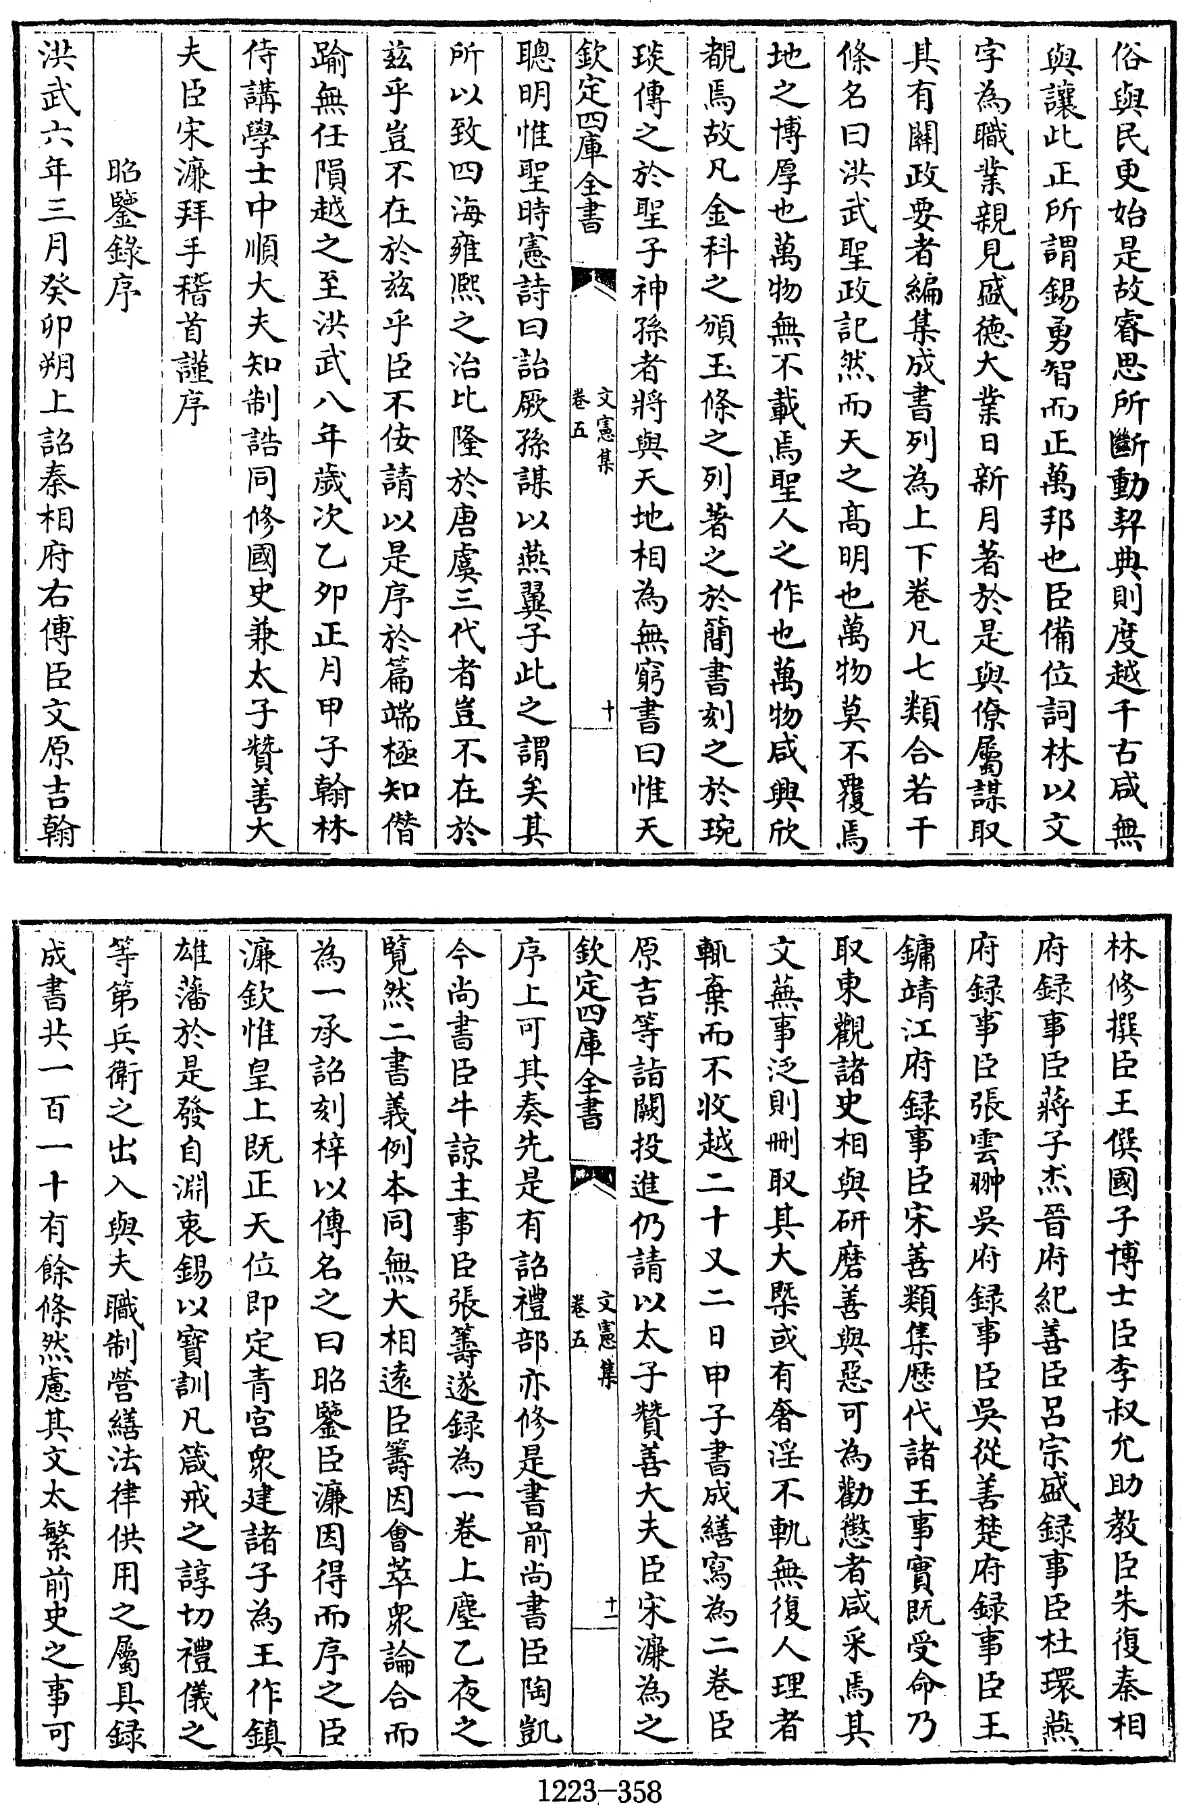 俗與民更始是故睿思所斷動契典則度越千古咸無
與讓此正所謂錫勇智而正萬邦也臣備位詞林以文
字為職業親見盛德大業日新月著於是與僚屬謀取
其有關政要者編集成書列為上下卷凡七類合若干
條名曰洪武聖政記然而天之髙明也萬物莫不覆焉
地之博厚也萬物無不載焉聖人之作也萬物咸興欣
覩焉故凡金科之頒玉條之列著之於簡書刻之於琬
琰傳之於聖子神孫者將與天地相為無窮書曰惟天
欽定四庫全書 文憲集 卷五 十
聰明惟聖時憲詩曰詒厥孫謀以燕翼子此之謂矣其
所以致四海雍熈之治比隆於唐虞三代者豈不在於
兹乎豈不在於兹乎臣不佞請以是序於篇端極知僭
踰無任隕越之至洪武八年歲次乙夘正月甲子翰林
侍講學士中順大夫知制誥同修國史兼太子贊善大
夫臣宋濂拜手稽首謹序
昭鑒錄序
洪武六年三月癸卯朔上詔秦相府右傅臣文原吉翰
林修撰臣王僎國子博士臣李叔允助教臣朱復秦相
府録事臣蔣子杰晉府紀善臣呂宗盛録事臣杜環燕
府録事臣張雲翀吳府録事臣吳從善楚府録事臣王
鏞靖江府録事臣宋善類集歴代諸王事實既受命乃
取東觀諸史相與研磨善與惡可為勸懲者咸采焉其
文蕪事泛則刪取其大槩或有奢淫不軌無復人理者
輒棄而不收越二十又二日甲子書成繕寫為二卷臣
原吉等詣闕投進仍請以太子贊善大夫臣宋濂為之
欽定四庫全書 文憲集 卷五 十一
序上可其奏先是有詔禮部亦修是書前尚書臣陶凱
今尚書臣牛諒主事臣張籌遂録為一卷上塵乙夜之
覽然二書義例本同無大相遠臣籌因會萃衆論合而
為一承詔刻梓以傳名之曰昭鑒臣濂因得而序之臣
濂欽惟皇上既正天位即定青宮衆建諸子為王作鎮
雄藩於是發自淵衷錫以寶訓凡箴戒之諄切禮儀之
等第兵衛之出入與夫職制營繕法律供用之屬具録
成書共一百一十有餘條然慮其文太繁前史之事可
1223-358